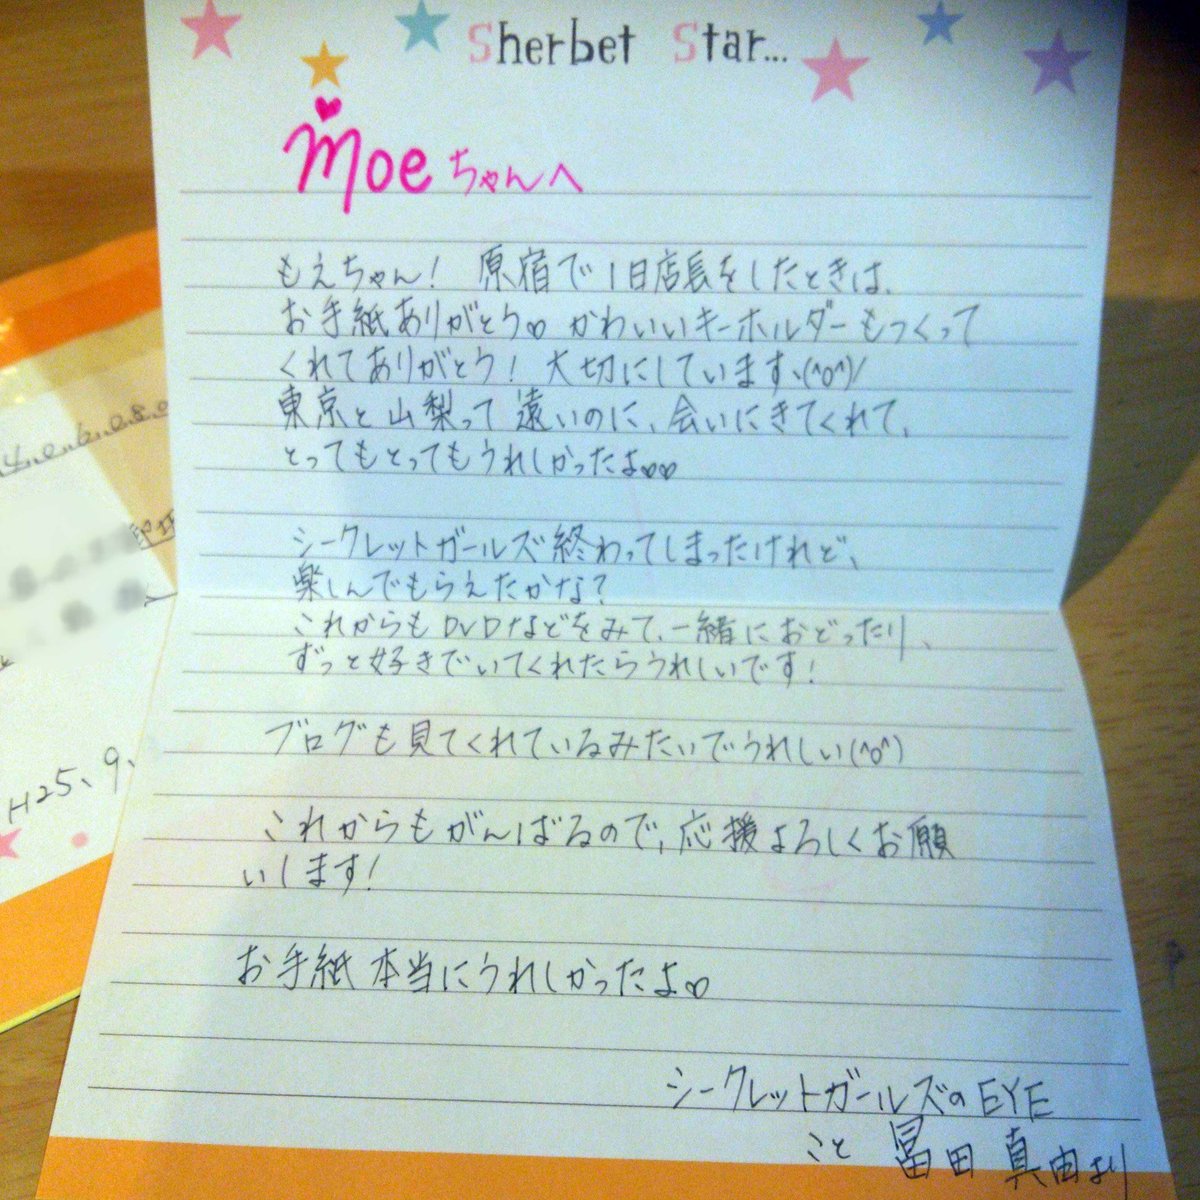 Sherbet Star...
Moeちゃんへ
もえちゃん! 原宿で1日店長をしたときは、
お手紙ありがとう♡ かわいいキーホルダーもつくって
くれてありがとう! 大切にしています、(^o^)/
東京と山梨って遠いのに、会いにきてくれて、
とってもとってもうれしかったよ♡♡
シークレットガールズ終わってしまったけれど、
楽しんでもらえたかな?
これからもDVDなどをみて、一緒におどったり、
ずっと好きでいてくれたらうれしいです!
ブログも見てくれているみたいでうれしい(^o^)
これからもがんばるので、応援よろしくお願
いします!
お手紙本当にうれしかったよ♡
シークレットガールズのEYE
こと 冨田 真由より
4.0.6.0.8.0
H25、9、